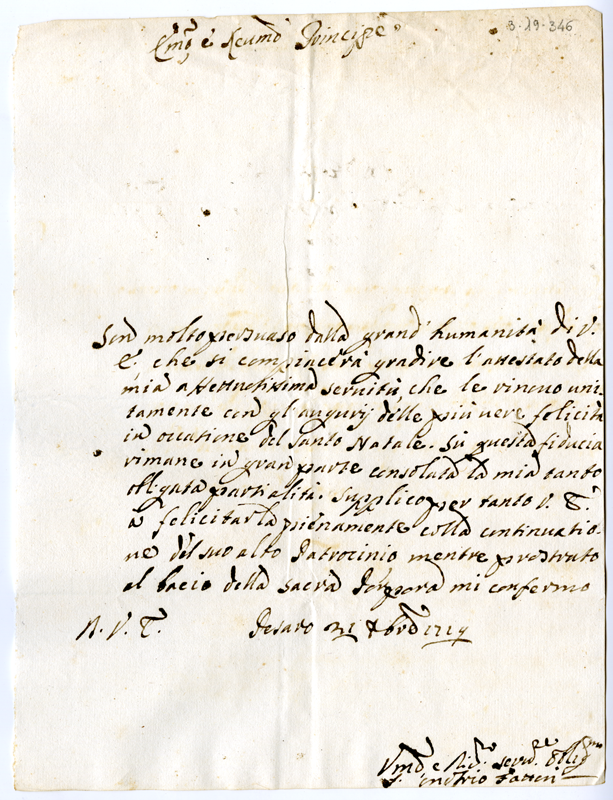 3-19-346
Em.o e Reumo Principe
Son molto persuaso dalla grand' humanità di V.
E. che si compiacerà gradire l'attestato della
mia affettuosissima servitù, che le rinuovo uni-
tamente con gl'augurij delle più vere felicità
in occatione del Santo Natale. Su questa fiducia
rimane in gran parte consolata la mia tanto
obligata partialità. Supplico per tanto V. E.
à felicitarla pienamente colla continuatio-
ne del suo alto Patrocinio mentre prostrato
al bacio della sacra Porpora mi confermo
Pesaro 21 Xbre 1719
Vmo e